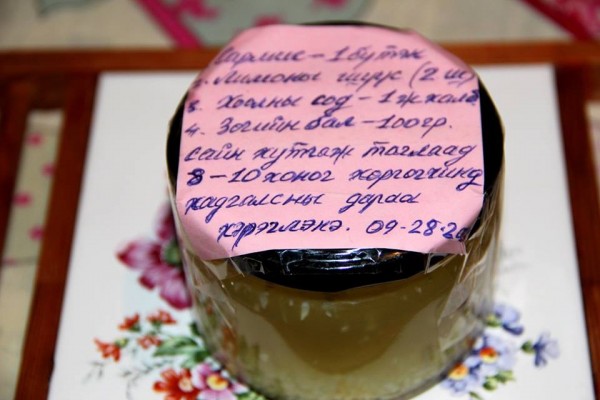 Сармис – 1 бутэн
2. Лимоны шүүс (2 ш)
3. Хоолны сод – 1 ж халб
4. Зөгийн бал – 100гр.
сайн хутгаж таглаад
8 – 10 хоног хөргөгчинд
хадгалсны дараа
хэрэглэнэ. 09-28-2